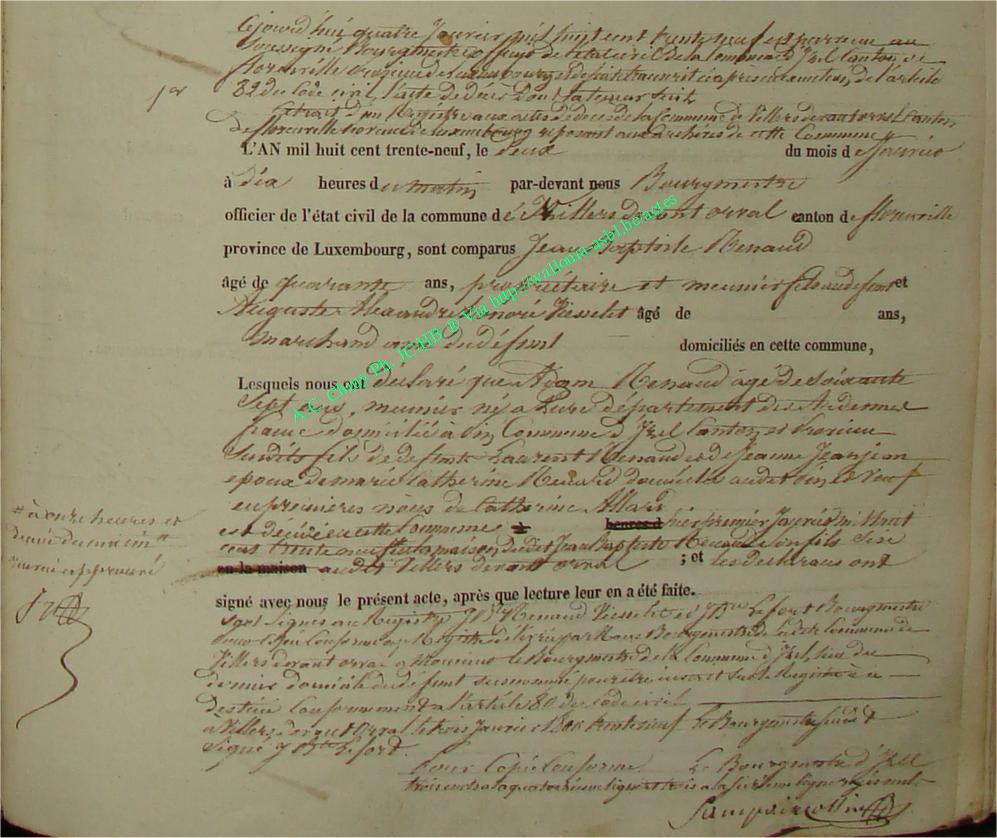 Cejourd'hui quatre Janvier mil huit cent trente neuf est parvenu au
Soussigné Bourgmestre officier de l'état civil de la commune d'Izel Canton de
florenville province de Luxembourg pour être transcrit ci après de l'article
82 du Code civil, l'acte de décès dont la teneur suit
1er
Extrait d'un Registre aux actes de décès de la Commune de Villers devant orval Canton
de florenville province de Luxembourg reposant aux archives de cette Commune
L'AN mil huit cent trente-neuf, le deux du mois de Janvier
à dix heures du matin par-devant nous Bourgmestre
officier de l'état civil de la commune de Villers devant orval canton de florenville
province de Luxembourg, sont comparus Jean Baptiste Renaud
âgé de quarante ans, propriétaire et meunier fils au défunt et
Auguste Alexandre honoré Visselet âgé de ans,
Marchand ami du défunt domiciliés en cette commune,
Lesquels nous ont déclaré que Adam Renaud âgé de Soixante
Sept ans, meunier né a département des Ardennes
france domicilié à pin Commune d'Izel Canton et Province
Susdits fils de défunts Laurent Renaud et de Jeanne Jeanjean
époux de marie Catherine Renard domiciliée audit pin et Veuf
en premières noces de Catherine Allard
est décédé en cette Commune heures d hier premier Janvier mil huit
cent trente neuf en la maison dudit Jean Baptiste Renaud Son fils Sise
en la maison audit Villers devant orval ; et les déclarans ont
# à onze heures et
demie du matin #
signé avec nous le présent acte, après que lecture leur en a été faite.
Sont Signés au Registre J Bte Renaud Visselet et J Bte Lefort Bourgmestre
Pour copie Conforme au Registre délivré par Nous Bourgmestre de ladite Commune de
Villers devant orval a Monsieur le Bourgmestre de la Commune d'Izel, lieu du
dernier domicile du défunt susnommé pour être inscrit sur le Registre à ce
destiné Conformément a l'article 80 du Code civil
a Villers devant Orval le trois Janvier 1800 trente neuf Le Bourgmestre susdit
Signé J Bte Lefort
Pour Copie Conforme Le Bourgmestre d'Izel
A.C. Chiny Ph. JC HD @ Via http://wallonia-asbl.be/actes